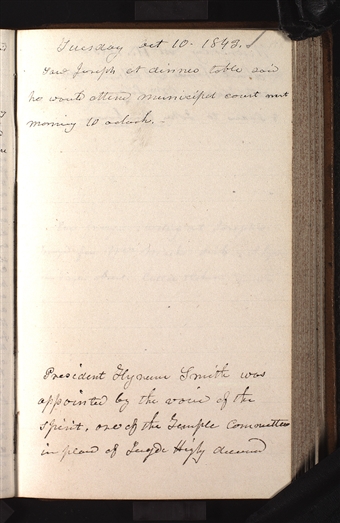 Tuesday oct 10. 1843.
saw Joseph at dinner table said
he would attend municipal court next
morning 10 oclock. -
President Hyrum Smith was
appointed by the voice of the
spirit, one of the Temple Committee
in place of Higby deceased